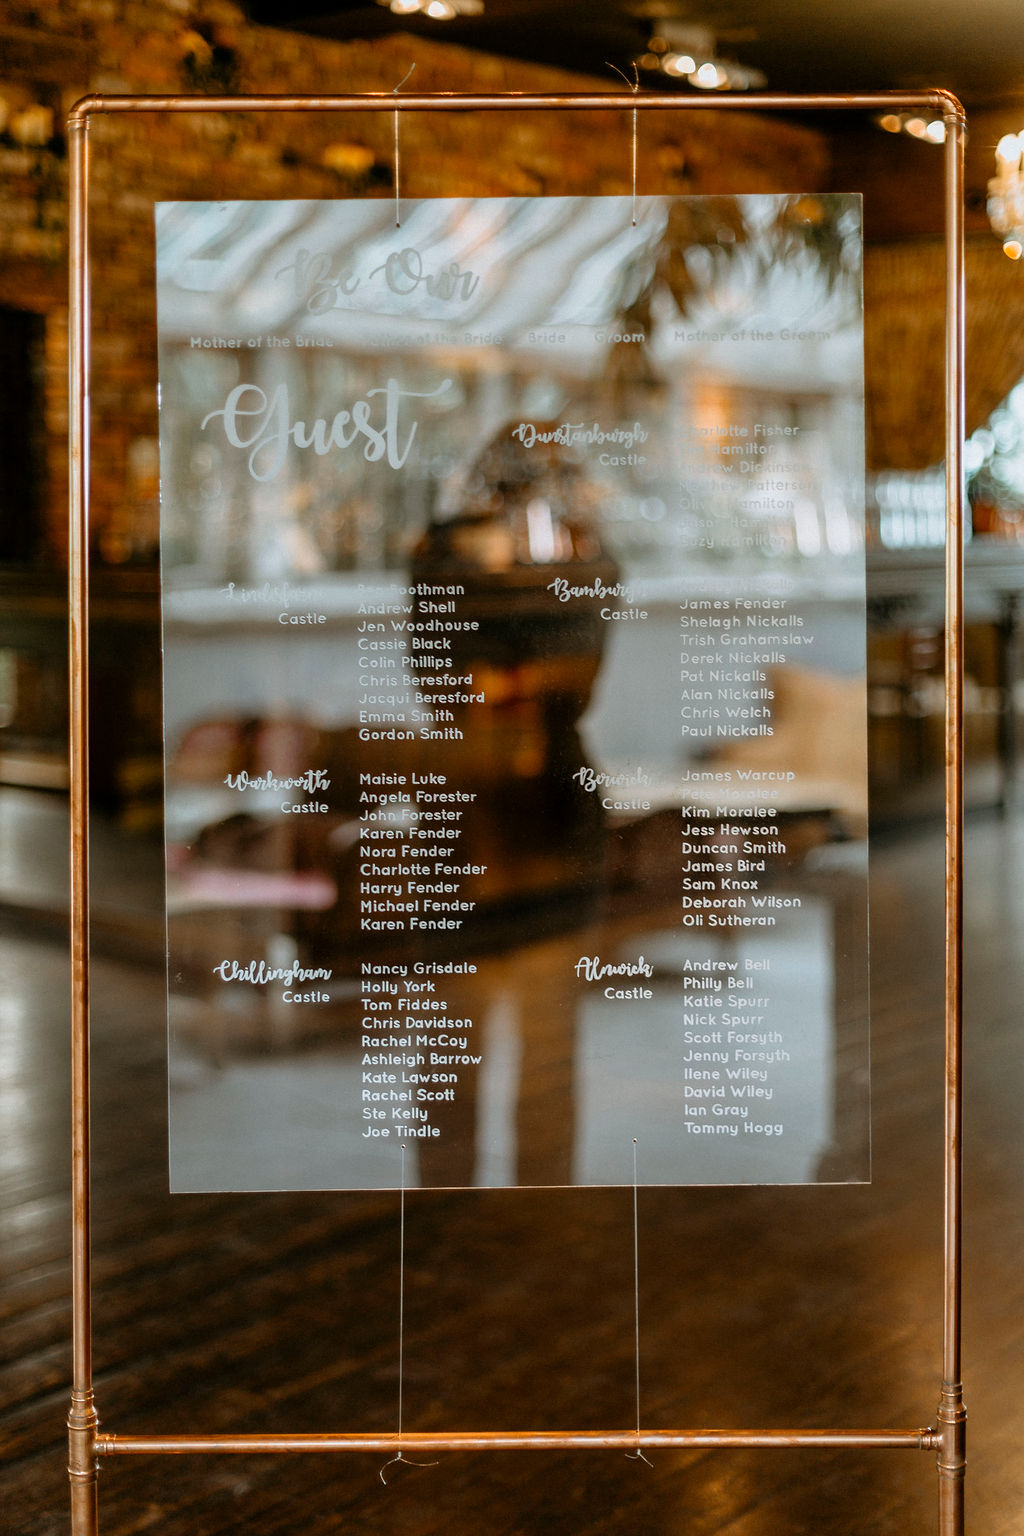 Be Our
Mother of the Bride Father of the Bride Bride Groom Mother of the Groom
Guest
Dunstanburgh
Castle
Charlotte Fisher
Hamilton
Andrew Dickinson
Matthew Patterson
Olivia Hamilton
Hamilton
Suzy Hamilton
Lindisfarne
Castle
Boothman
Andrew Shell
Jen Woodhouse
Cassie Black
Colin Phillips
Chris Beresford
Jacqui Beresford
Emma Smith
Gordon Smith
Bamburgh
Castle
James Fender
Shelagh Nickalls
Trish Grahamslaw
Derek Nickalls
Pat Nickalls
Alan Nickalls
Chris Welch
Paul Nickalls
Warkworth
Castle
Maisie Luke
Angela Forester
John Forester
Karen Fender
Nora Fender
Charlotte Fender
Harry Fender
Michael Fender
Karen Fender
Berwick
Castle
James Warcup
Pete Moralee
Kim Moralee
Jess Hewson
Duncan Smith
James Bird
Sam Knox
Deborah Wilson
Oli Sutheran
Chillingham
Castle
Nancy Grisdale
Holly York
Tom Fiddes
Chris Davidson
Rachel McCoy
Ashleigh Barrow
Kate Lawson
Rachel Scott
Ste Kelly
Joe Tindle
Alnwick
Castle
Andrew Bell
Philly Bell
Katie Spurr
Nick Spurr
Scott Forsyth
Jenny Forsyth
Ilene Wiley
David Wiley
Ian Gray
Tommy Hogg